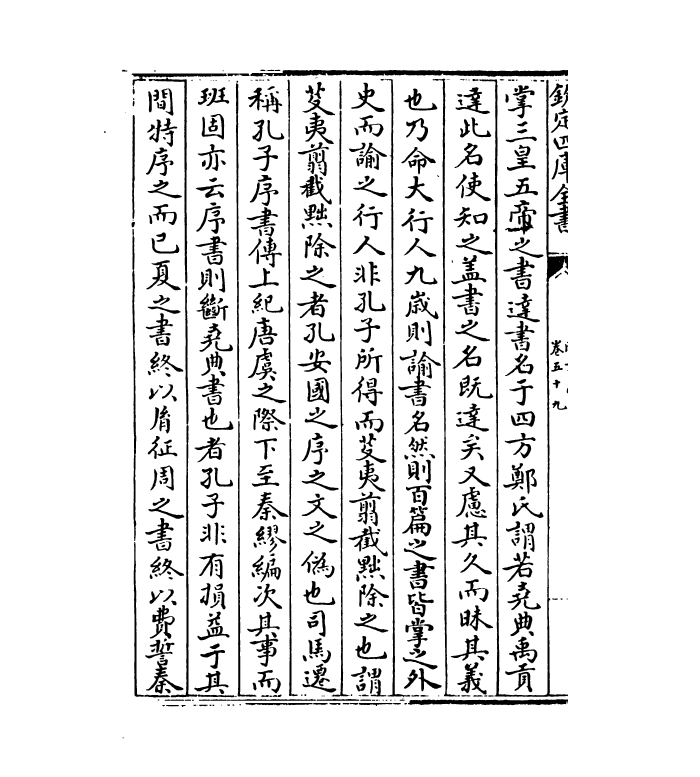 欽定四庫全書
卷五十九
掌三皇五帝之書達書名于四方鄭氏謂若堯典禹貢
達此名使知之盖書之名既達矣又慮其久而昧其義
也乃命大行人九歳則諭書名然則百篇之書皆掌之外
史而諭之行人非孔子所得而芟夷翦截黜除之也謂
芟夷翦截黜除之者孔安國之序之文之偽也司馬遷
稱孔子序書傳上紀唐虞之際下至秦繆編次其事而
班固亦云序書則斷堯典書也者孔子非有損益于其
間特序之而已夏之書終以㣧征周之書終以費誓秦